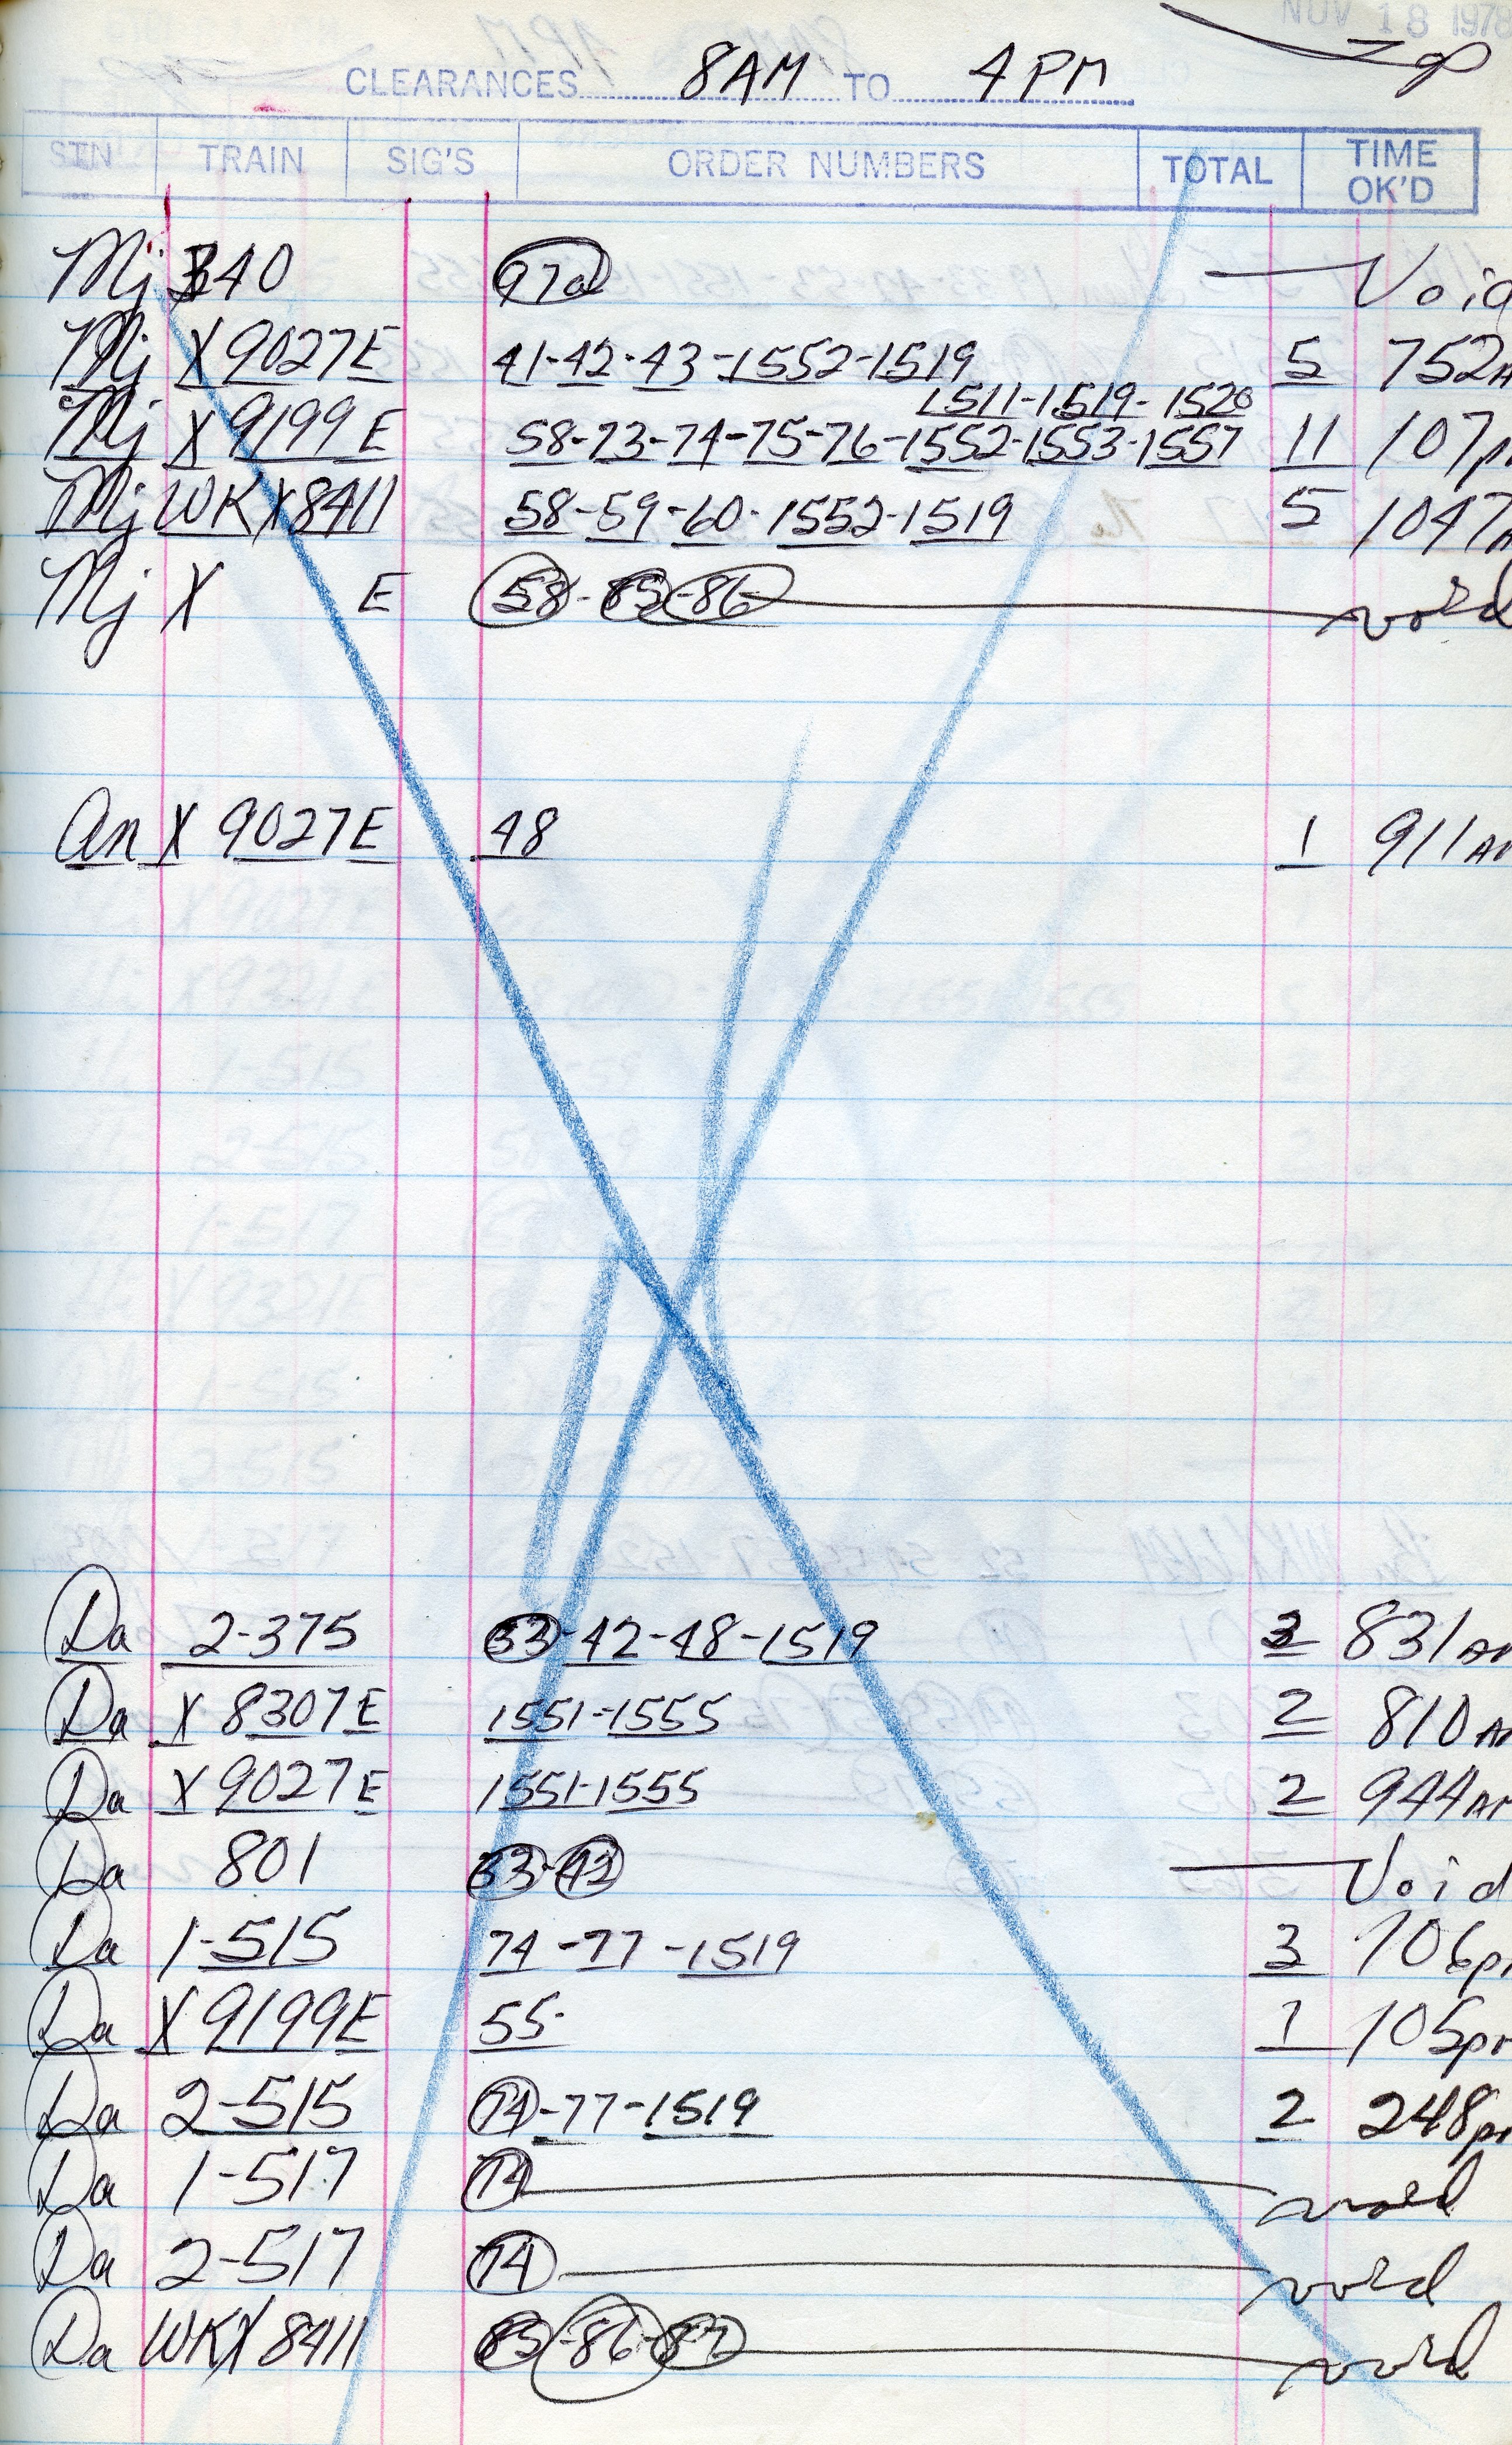 NOV 18 1978
CLEARANCES 8AM TO 4PM
STN TRAIN SIG'S ORDER NUMBERS TOTAL TIME OK'D
Mj 340 Void
Mj X 9027E 41-42-43-1552-1519 5 752A
1511-1519-1520
Mj X 9199E 58-73-74-75-76-1552-1553-1557 11 107p
Mj WKX8411 58-59-60-1552-1519 5 1047A
Mj X E 58-85-86 void
An X 9027E 48 1 911AM
Da 2-375 33-42-48-1519 3 831AM
Da X 8307E 1551-1555 2 810AM
Da X 9027E 1551-1555 2 944AM
Da 801 33-42 Void
Da 1-515 74-77-1519 3 106pm
Da X 9199E 55 1 105pm
Da 2-515 74-77-1519 2 248pm
Da 1-517 74 void
Da 2-517 74 void
Da WKX8411 85-86-87 void